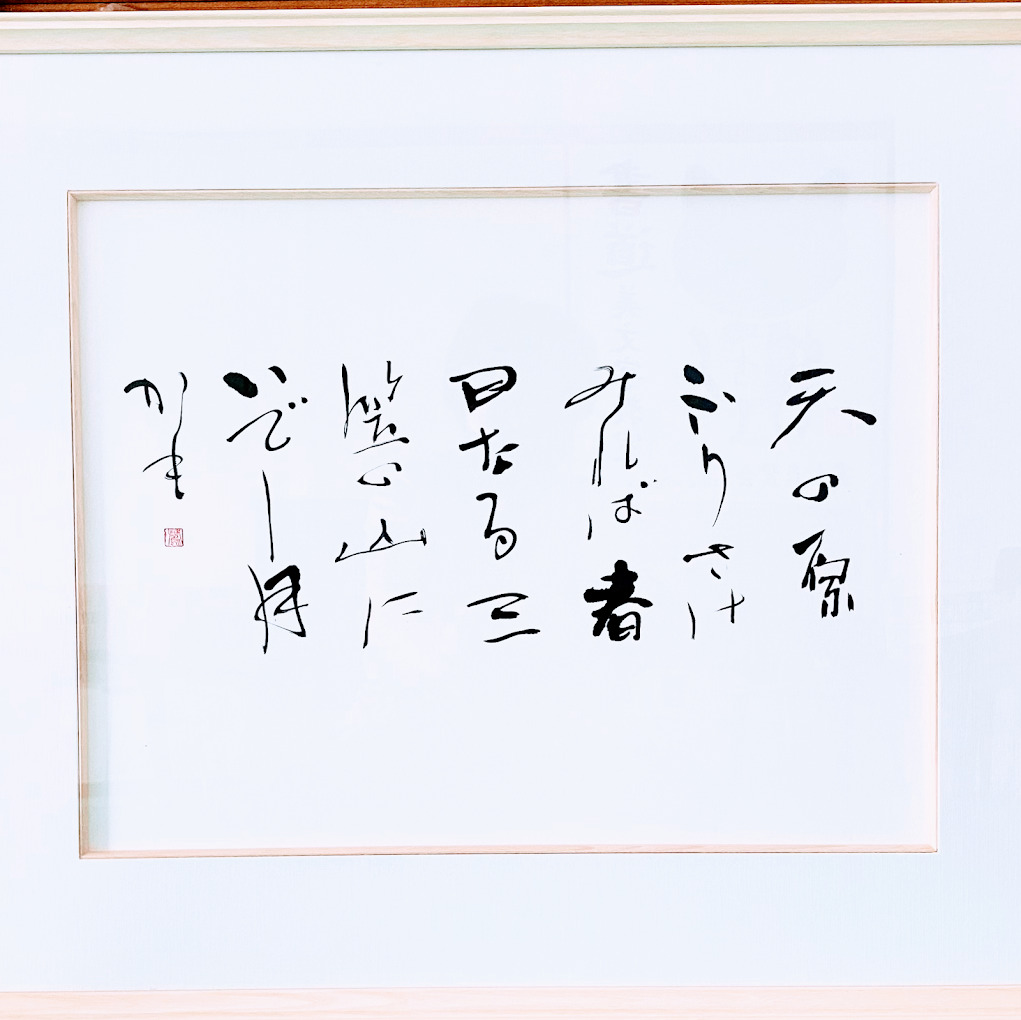 天の原
ふりさけ
みれば春
日なる三
笠の山に
いでし月
かも